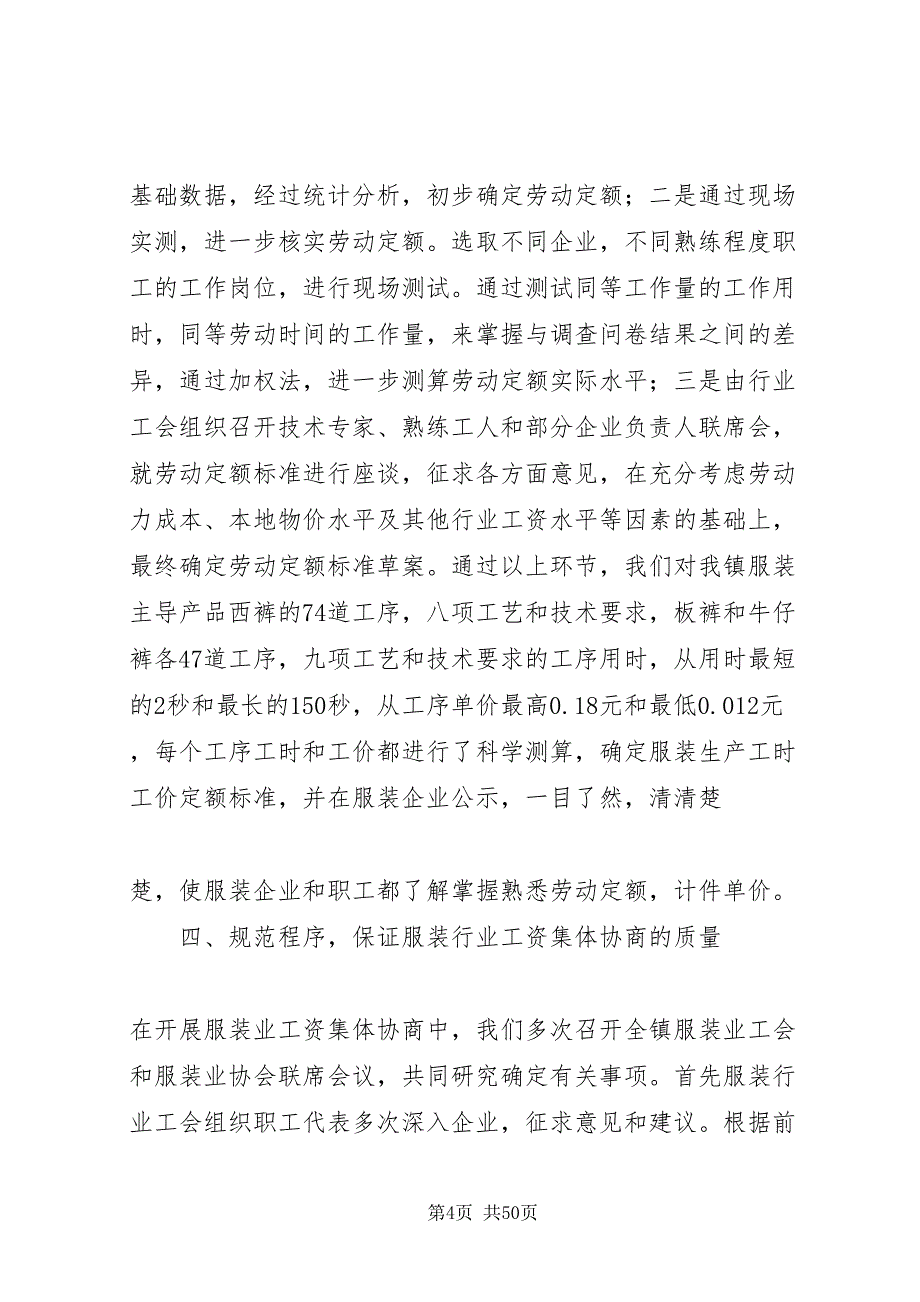 基础数据，经过统计分析，初步确定劳动定额；二是通过现场
实测，进一步核实劳动定额。选取不同企业，不同熟练程度职
工的工作岗位，进行现场测试。通过测试同等工作量的工作用
时，同等劳动时间的工作量，来掌握与调查问卷结果之间的差
异，通过加权法，进一步测算劳动定额实际水平；三是由行业
工会组织召开技术专家、熟练工人和部分企业负责人联席会，
就劳动定额标准进行座谈，征求各方面意见，在充分考虑劳动
力成本、本地物价水平及其他行业工资水平等因素的基础上，
最终确定劳动定额标准草案。通过以上环节，我们对我镇服装
主导产品西裤的74道工序，八项工艺和技术要求，板裤和牛仔
裤各47道工序，九项工艺和技术要求的工序用时，从用时最短
的2秒和最长的150秒，从工序单价最高0.18元和最低0.012元
，每个工序工时和工价都进行了科学测算，确定服装生产工时
工价定额标准，并在服装企业公示，一目了然，清清楚
楚，使服装企业和职工都了解掌握熟悉劳动定额，计件单价。
四、规范程序，保证服装行业工资集体协商的质量
在开展服装业工资集体协商中，我们多次召开全镇服装业工会
和服装业协会联席会议，共同研究确定有关事项。首先服装行
业工会组织职工代表多次深入企业，征求意见和建议。根据前
第4页 共50页